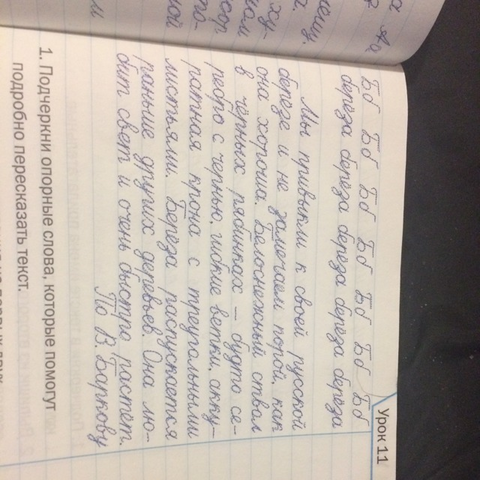 Урок 11
Бб Бб Бб Бб Бб Бб Бб
берёза берёза берёза берёза берёза
Мы привыкли к своей русской
берёзе и не замечаем порой, как
она хороша. Белоснежный ствол
в чёрных рябинках – будто се-
ребро с чернью, гибкие ветки, акку-
ратная крона с треугольными
листьями. Берёза распускается
раньше других деревьев. Она лю-
бит свет и очень быстро растёт.
По В. Баркову
1. Подчеркни опорные слова, которые помогут
подробно пересказать текст.